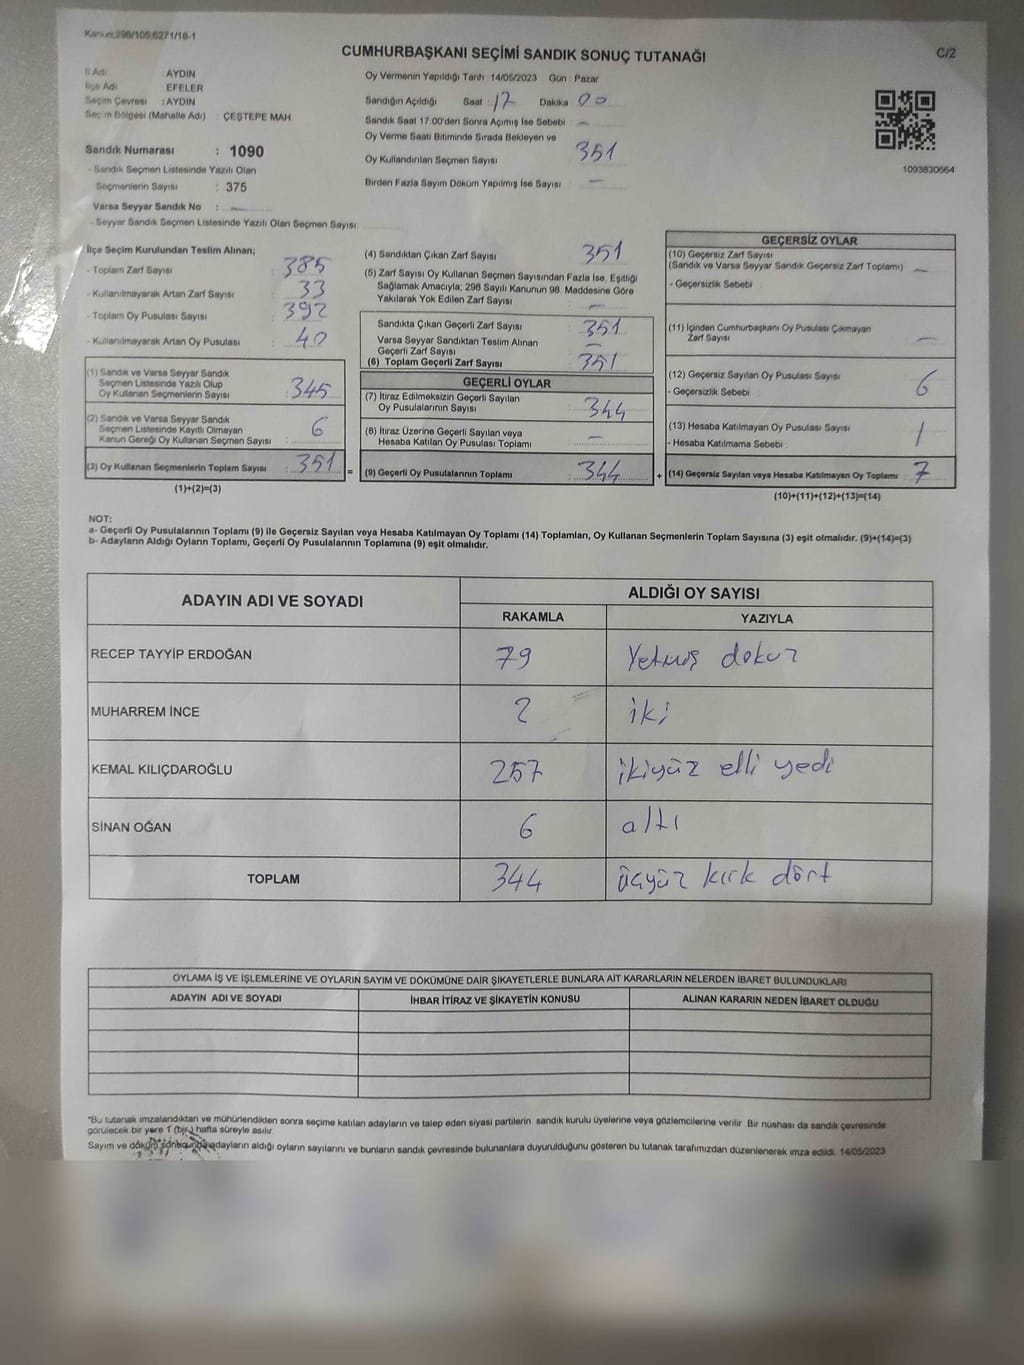 Kanun:298/105,6271/18-1
CUMHURBAŞKANI SEÇİMİ SANDIK SONUÇ TUTANAĞI
C/2
İl Adı AYDIN
İlçe Adı EFELER
Seçim Çevresi : AYDIN
Seçim Bölgesi (Mahalle Adı) : ÇEŞTEPE MAH.
Sandık Numarası : 1090
- Sandık Seçmen Listesinde Yazılı Olan
Seçmenlerin Sayısı : 375
Varsa Seyyar Sandık No : —
- Seyyar Sandık Seçmen Listesinde Yazılı Olan Seçmen Sayısı
Oy Vermenin Yapıldığı Tarih : 14/05/2023 Gün : Pazar
Sandığın Açıldığı Saat : 17 Dakika 00
Sandık Saat 17:00'den Sonra Açımış İse Sebebi : —
Oy Verme Saati Bitiminde Sırada Bekleyen ve
Oy Kullandırılan Seçmen Sayısı 351
Birden Fazla Sayım Döküm Yapılmış İse Sayısı : —
1093830664
İlçe Seçim Kurulundan Teslim Alınan;
- Toplam Zarf Sayısı : 385
- Kullanılmayarak Artan Zarf Sayısı : 33
- Toplam Oy Pusulası Sayısı : 392
- Kullanılmayarak Artan Oy Pusulası : 40
(1) Sandık ve Varsa Seyyar Sandık
Seçmen Listesinde Yazılı Olup
Oy Kullanan Seçmenlerin Sayısı : 345
(2) Sandık ve Varsa Seyyar Sandık
Seçmen Listesinde Kayıtlı Olmayan
Kanun Gereği Oy Kullanan Seçmen Sayısı : 6
(3) Oy Kullanan Seçmenlerin Toplam Sayısı : 351 =
(1)+(2)=(3)
(4) Sandıktan Çıkan Zarf Sayısı : 351
(5) Zarf Sayısı Oy Kullanan Seçmen Sayısından Fazla İse, Eşitliği
Sağlamak Amacıyla; 298 Sayılı Kanunun 98. Maddesine Göre
Yakılarak Yok Edilen Zarf Sayısı : —
Sandıkta Çıkan Geçerli Zarf Sayısı : 351
Varsa Seyyar Sandıktan Teslim Alınan
Geçerli Zarf Sayısı : —
(6) Toplam Geçerli Zarf Sayısı : 351
GEÇERLİ OYLAR
(7) İtiraz Edilmeksizin Geçerli Sayılan
Oy Pusulalarının Sayısı : 344
(8) İtiraz Üzerine Geçerli Sayılan veya
Hesaba Katılan Oy Pusulası Toplamı : —
(9) Geçerli Oy Pusulalarının Toplamı : 344 +
GEÇERSİZ OYLAR
(10) Geçersiz Zarf Sayısı
(Sandık ve Varsa Seyyar Sandık Geçersiz Zarf Toplamı) : —
- Geçersizlik Sebebi :
(11) İçinden Cumhurbaşkanı Oy Pusulası Çıkmayan
Zarf Sayısı : —
(12) Geçersiz Sayılan Oy Pusulası Sayısı : 6
- Geçersizlik Sebebi :
(13) Hesaba Katılmayan Oy Pusulası Sayısı : 1
- Hesaba Katılmama Sebebi :
(14) Geçersiz Sayılan veya Hesaba Katılmayan Oy Toplamı : 7
(10)+(11)+(12)+(13)=(14)
NOT:
a- Geçerli Oy Pusulalarının Toplamı (9) ile Geçersiz Sayılan veya Hesaba Katılmayan Oy Toplamı (14) Toplamları, Oy Kullanan Seçmenlerin Toplam Sayısına (3) eşit olmalıdır. (9)+(14)=(3)
b- Adayların Aldığı Oyların Toplamı, Geçerli Oy Pusulalarının Toplamına (9) eşit olmalıdır.
ADAYIN ADI VE SOYADI ALDIĞI OY SAYISI
RAKAMLA YAZIYLA
RECEP TAYYİP ERDOĞAN 79 Yetmiş dokuz
MUHARREM İNCE 2 iki
KEMAL KILIÇDAROĞLU 257 ikiyüz elli yedi
SİNAN OĞAN 6 altı
TOPLAM 344 üçyüz kırk dört
OYLAMA İŞ VE İŞLEMLERİNE VE OYLARIN SAYIM VE DÖKÜMÜNE DAİR ŞİKAYETLERLE BUNLARA AİT KARARLARIN NELERDEN İBARET BULUNDUKLARI
ADAYIN ADI VE SOYADI İHBAR İTİRAZ VE ŞİKAYETİN KONUSU ALINAN KARARIN NEDEN İBARET OLDUĞU
*Bu tutanak imzalandıktan ve mühürlendikten sonra seçime katılan adayların ve talep eden siyasi partilerin sandık kurulu üyelerine veya gözlemcilerine verilir. Bir nüshası da sandık çevresinde
görülecek bir yere 1 (bir) hafta süreyle asılır.
Sayım ve döküm sonucunda adayların aldığı oyların sayılarını ve bunların sandık çevresinde bulunanlara duyurulduğunu gösteren bu tutanak tarafımızdan düzenlenerek imza edildi. 14/05/2023